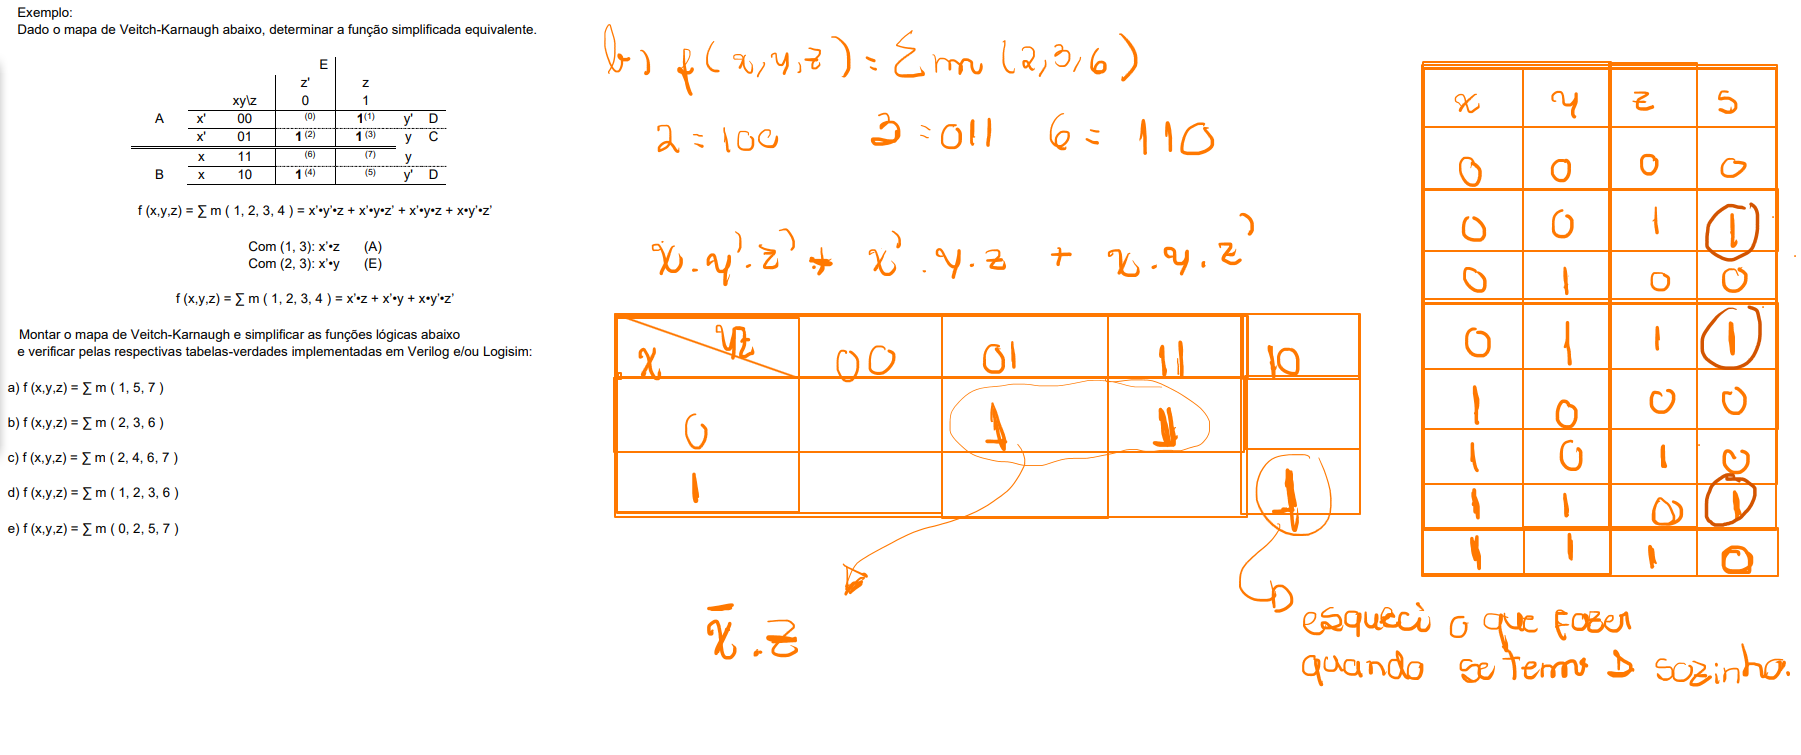 Exemplo:
Dado o mapa de Veitch-Karnaugh abaixo, determinar a função simplificada equivalente.
E
z' z
xy\z 0 1
A x' 00 (0) 1(1) y' D
x' 01 1(2) 1(3) y C
x 11 (6) (7) y
B x 10 1(4) (5) y' D
f (x,y,z) = ∑ m ( 1, 2, 3, 4 ) = x'•y'•z + x'•y•z' + x'•y•z + x•y'•z'
Com (1, 3): x'•z (A)
Com (2, 3): x'•y (E)
f (x,y,z) = ∑ m ( 1, 2, 3, 4 ) = x'•z + x'•y + x•y'•z'
Montar o mapa de Veitch-Karnaugh e simplificar as funções lógicas abaixo
e verificar pelas respectivas tabelas-verdades implementadas em Verilog e/ou Logisim:
a) f (x,y,z) = ∑ m ( 1, 5, 7 )
b) f (x,y,z) = ∑ m ( 2, 3, 6 )
c) f (x,y,z) = ∑ m ( 2, 4, 6, 7 )
d) f (x,y,z) = ∑ m ( 1, 2, 3, 6 )
e) f (x,y,z) = ∑ m ( 0, 2, 5, 7 )
b) f(x,y,z) = ∑m (2,3,6)
2 = 100 3 = 011 6 = 110
x.y'.z' + x'.y.z + x.y.z'
x yz 00 01 11 10
0 1 1
1 1
x̄.z
esqueci o que fazer
quando se tem 1 sozinho.
x y z S
0 0 0 0
0 0 1 1
0 1 0 0
0 1 1 1
1 0 0 0
1 0 1 0
1 1 0 1
1 1 1 0